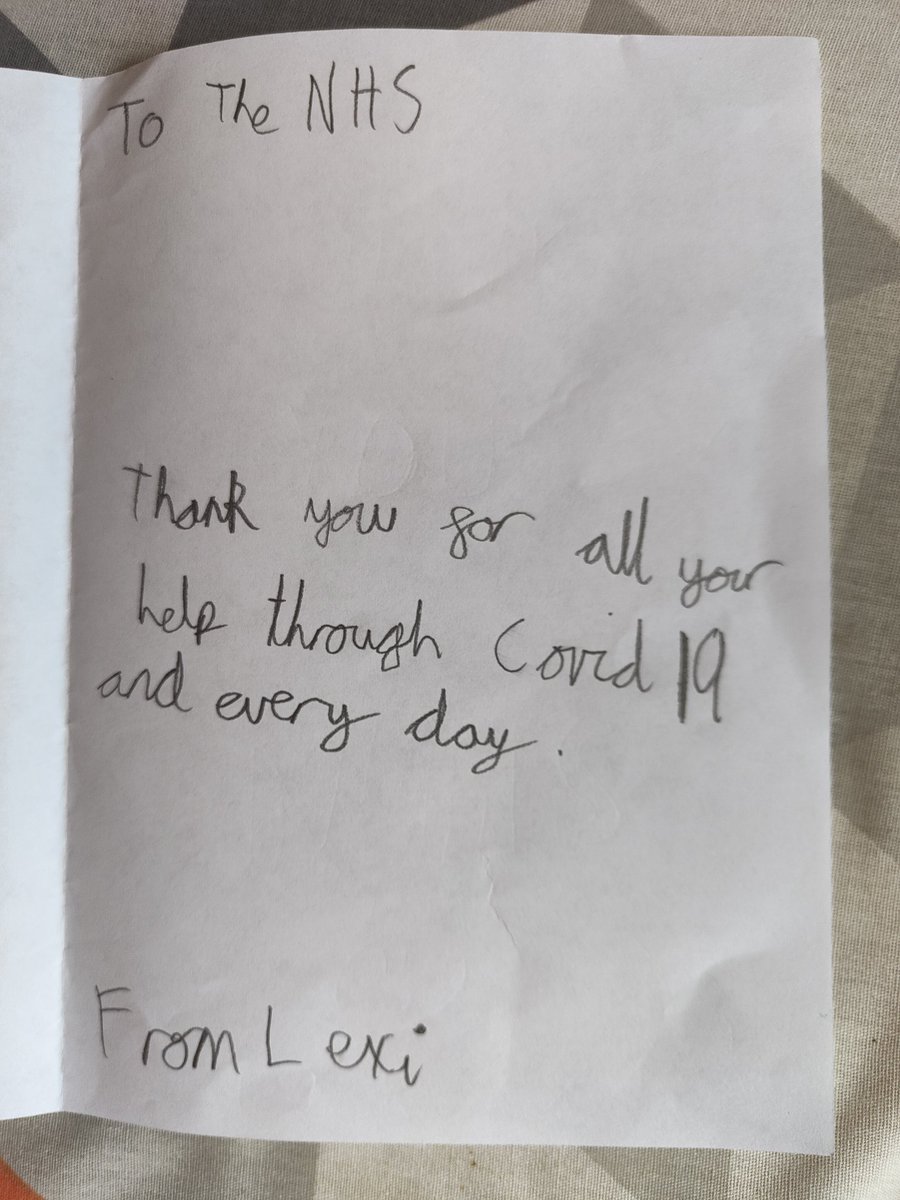 To The NHS
Thank you for all your
help through Covid 19
and every day.
From Lexi